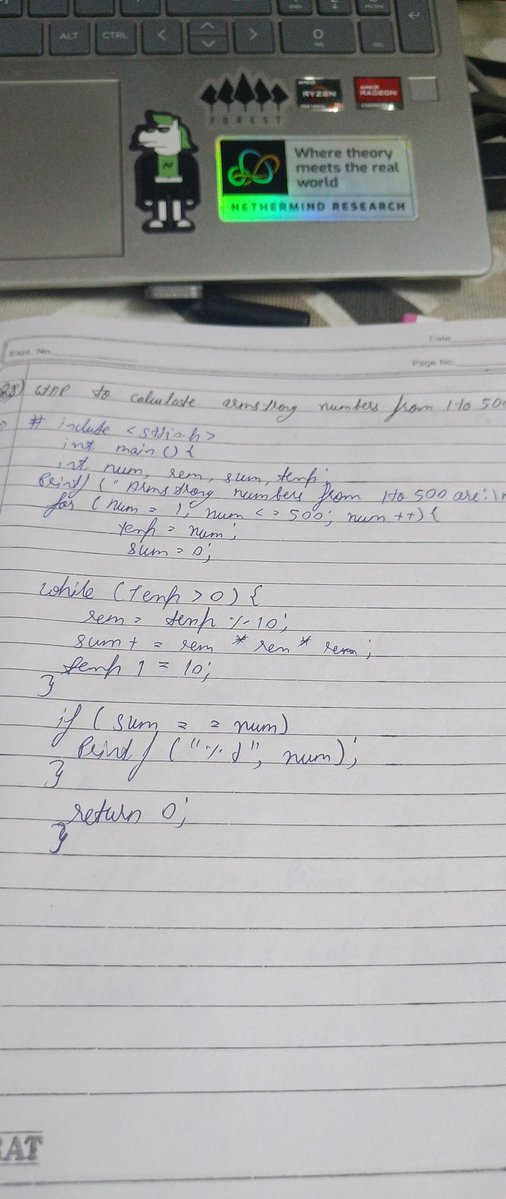 ALT CTRL
FOREST
AMD
RYZEN
AMD
RADEON
Where theory
meets the real
world
NETHERMIND RESEARCH
Date
Expt. No.
Page No.
WAP to calculate armstrong numbers from 1 to 500
# include <stdio.h>
int main () {
int num, rem, sum, temp;
Printf ("Armstrong numbers from 1 to 500 are:\n
for (num = 1; num <= 500; num ++) {
temp = num;
sum = 0;
while (temp > 0) {
rem = temp % 10;
sum + = rem * rem * rem;
temp / = 10;
}
if (sum = = num)
Printf ("%d", num);
}
return 0;
}
RAT